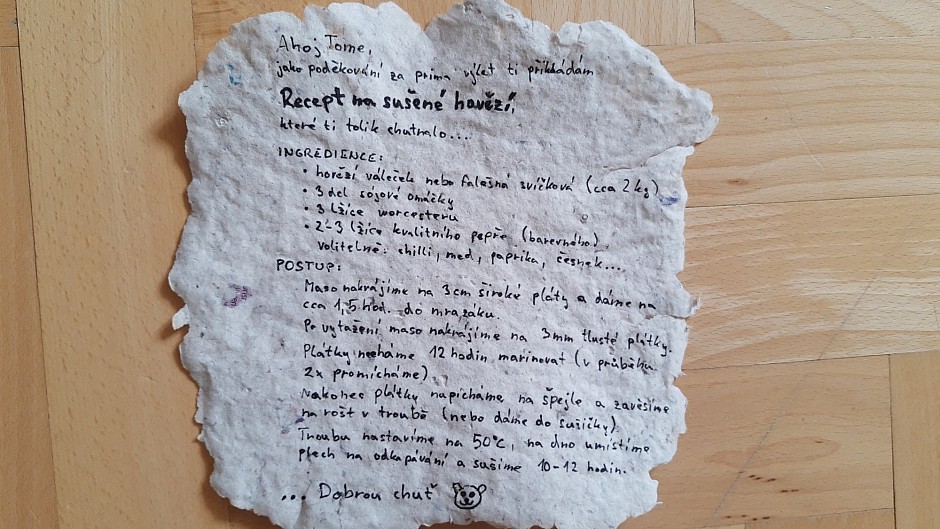 Ahoj Tome,
jako poděkování za prima výlet ti přikládám
Recept na sušené hovězí,
které ti tolik chutnalo...
INGREDIENCE:
• hovězí váleček nebo falešná svíčková (cca 2 kg)
• 3 del sójové omáčky
• 3 lžíce worcesteru
• 2-3 lžíce kvalitního pepře (barevného)
volitelně: chilli, med, paprika, česnek....
POSTUP:
Maso nakrájíme na 3cm široké pláty a dáme na
cca 1,5 hod. do mrazáku.
Po vytažení maso nakrájíme na 3mm tlusté plátky.
Plátky necháme 12 hodin marinovat (v průběhu
2x promícháme)
Nakonec plátky napícháme na špejle a zavěsíme
na rošt v troubě (nebo dáme do sušičky).
Troubu nastavíme na 50°C, na dno umístíme
plech na odkapávání a sušíme 10-12 hodin.
... Dobrou chuť